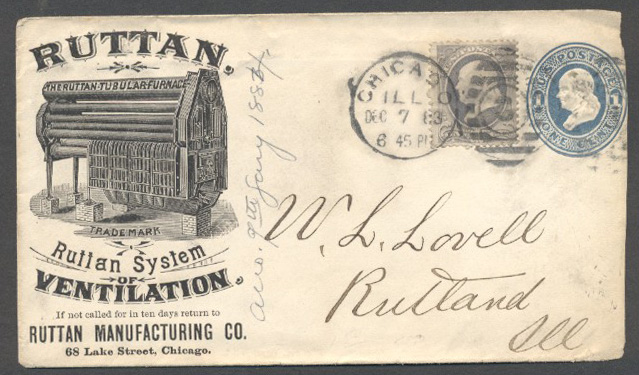 RUTTAN,
THE RUTTAN-TUBULAR FURNACE
TRADE MARK
Ruttan System
OF
VENTILATION,
If not called for in ten days return to
RUTTAN MANUFACTURING CO.
68 Lake Street, Chicago.
1884.
CHICAGO
ILL
DEC 7 83
6 45 PM
U.S. POSTAGE
1 1
ONE
W. L. Lovell
Rutland
Ill